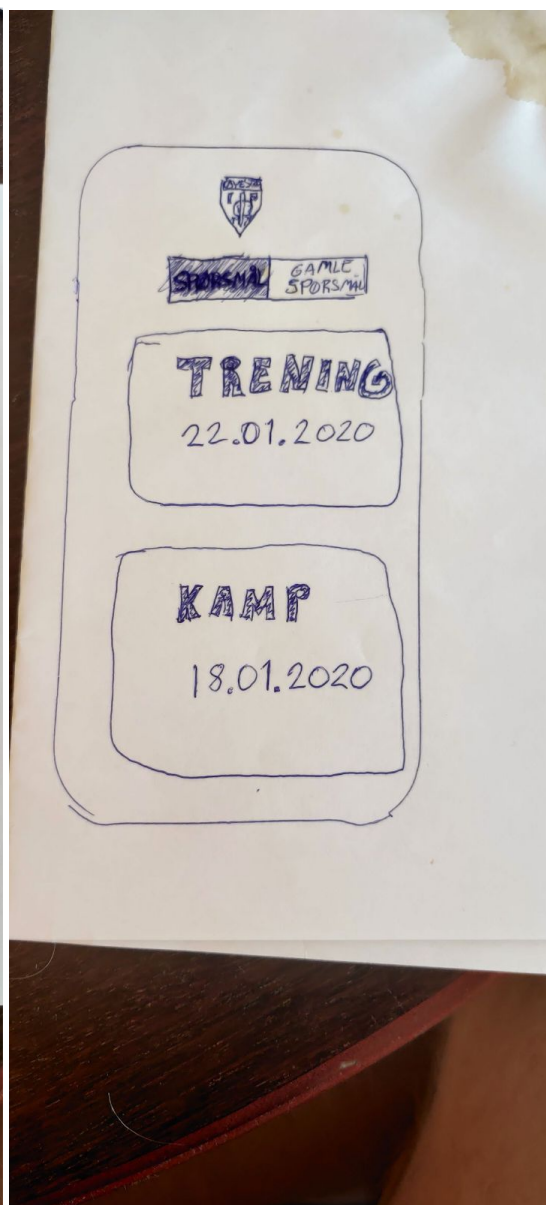 SPØRSMÅL
GAMLE
SPØRSMÅL
TRENING
22.01.2020
KAMP
18.01.2020